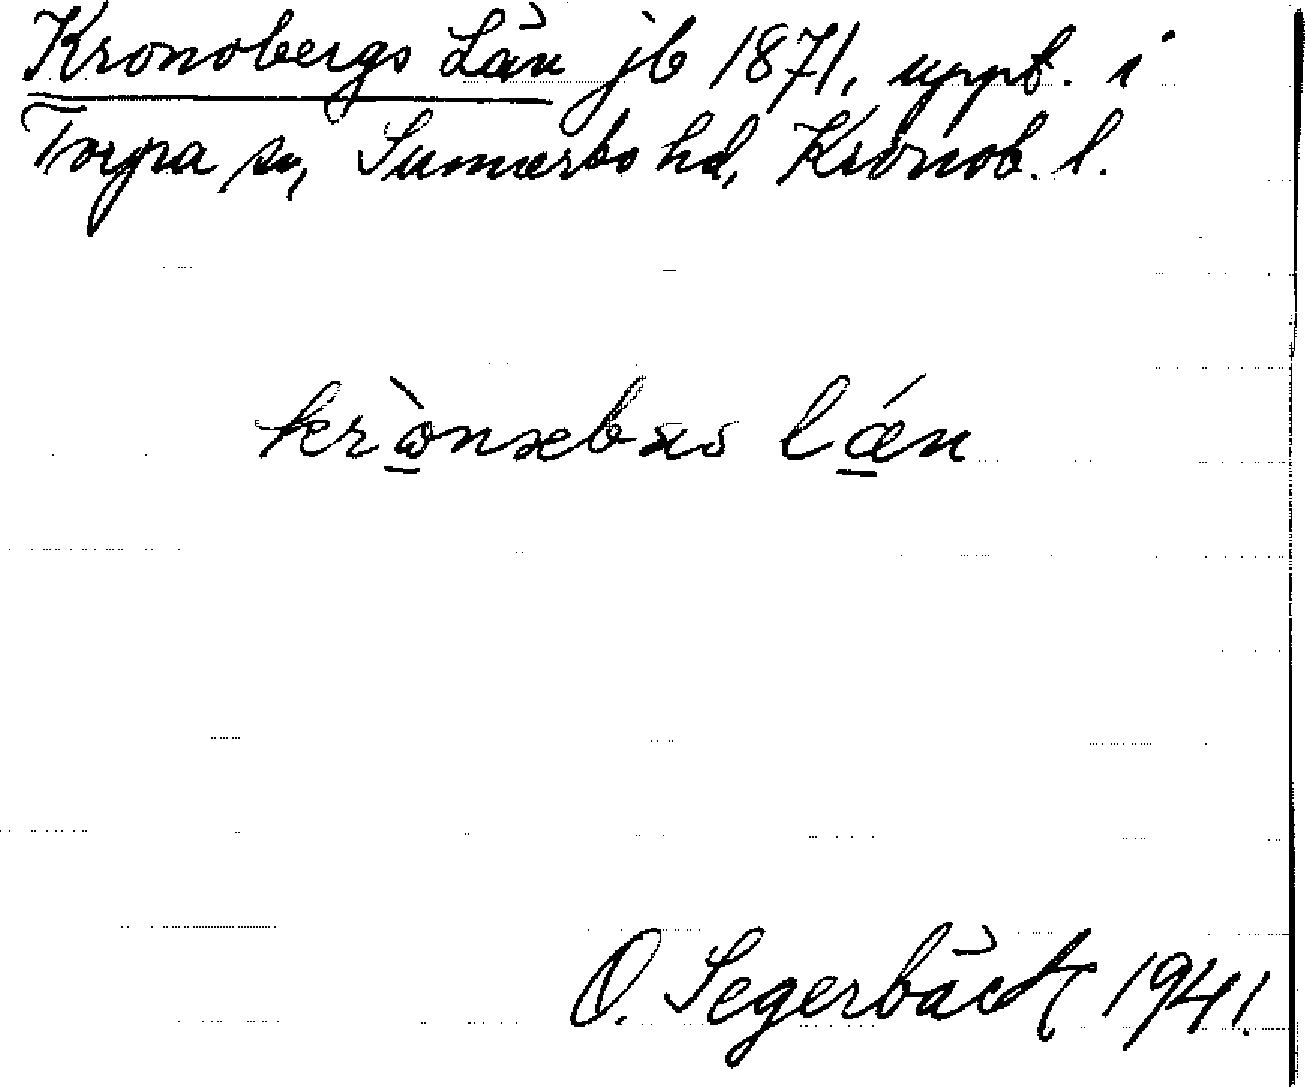 Kronobergs Län jb 1871, uppt. i
Torpa sn, Sunnerbo hd, Kronob. l.
krònæbæs lǽn
O. Segerbäck 1941.